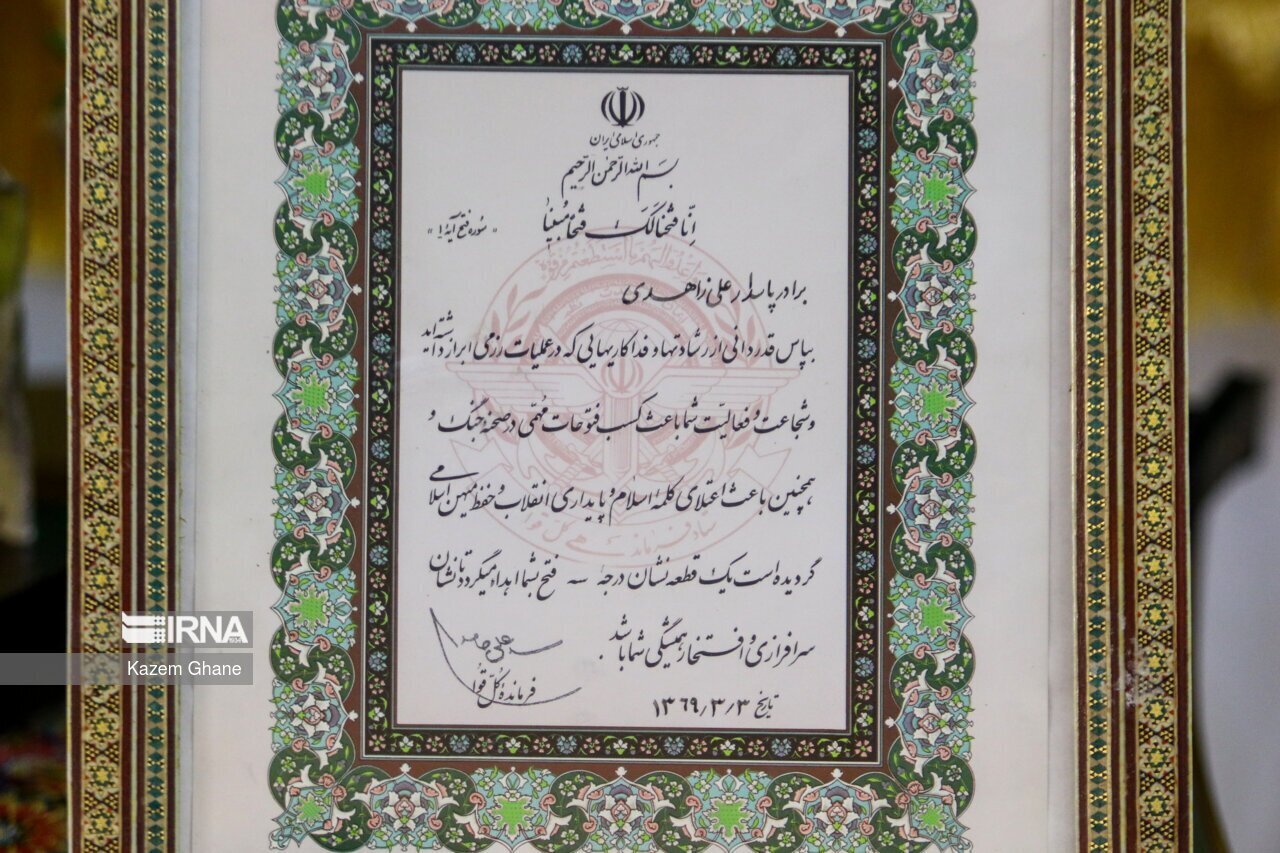 جمهوری اسلامی ایران
بسم الله الرحمن الرحیم
إنّا فتحنا لک فتحاً مُبیناً « سوره فتح آیهٔ ۱ »
برادر پاسدار علی زاهدی
بپاس قدردانی از رشادتها و فداکاریهایی که در عملیات رزمی ابراز داشته‌اید
و شجاعت و فعالیّت شما باعث کسب فتوحات مُهمّی در صحنهٔ جنگ و
همچنین باعث اعتلای کلمهٔ اسلام و پایداری انقلاب و حفظ میهن اسلامی
گردیده است یک قطعه نشان درجهٔ سه فتح بشما اهداء میگردد تا نشان
سرافرازی و افتخار همیشگی شما باشد.
فرماندهٔ کُلّ قُوا
تاریخ ۱۳۶۹/۳/۳
IRNA
Kazem Ghane